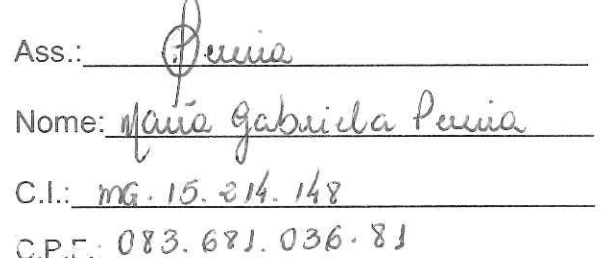 Ass.: Pereira
Nome: Maria Gabriela Pereira
C.I.: MG. 15. 214. 148
C.P.F.: 083. 681. 036. 81